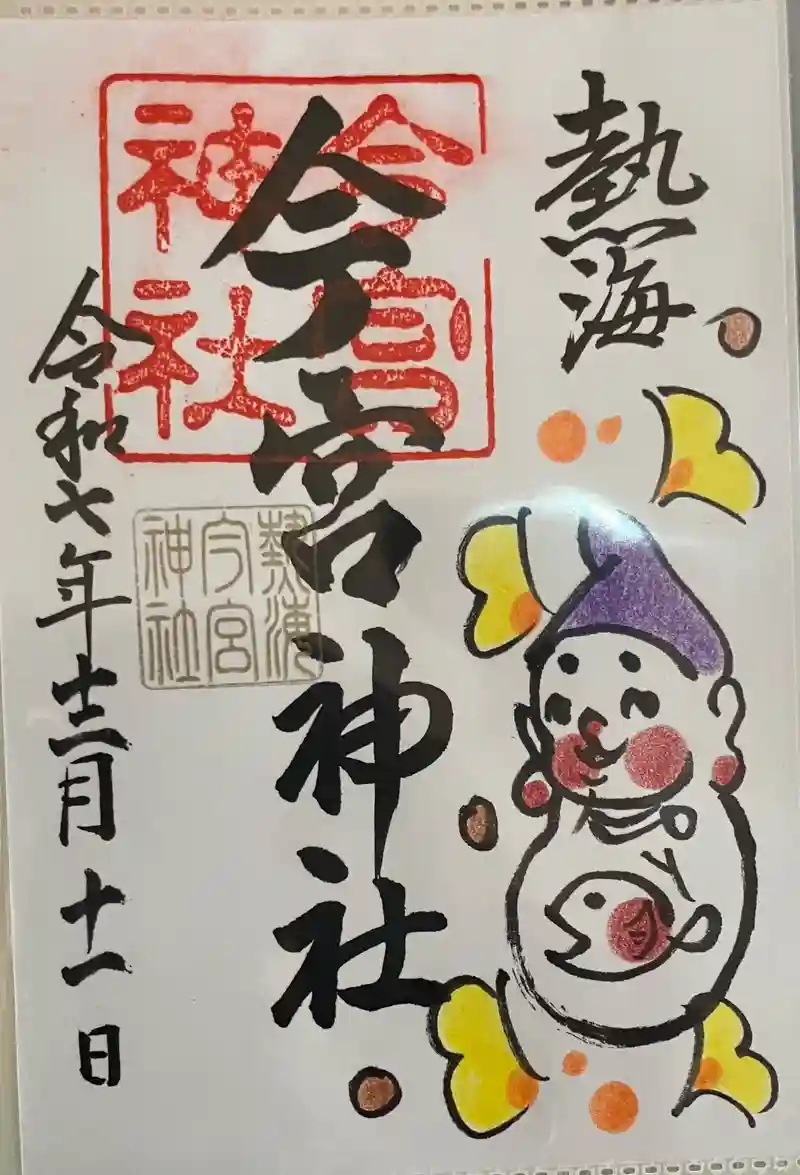 熱海
今宮神社
令和七年十二月十一日
今宮
神社
熱海
今宮
神社